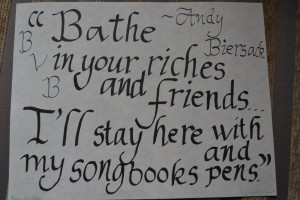 “Bathe
~Andy
Biersack
B
V
B
in your riches
and friends...
I'll stay here with
my songbooks and
pens.”